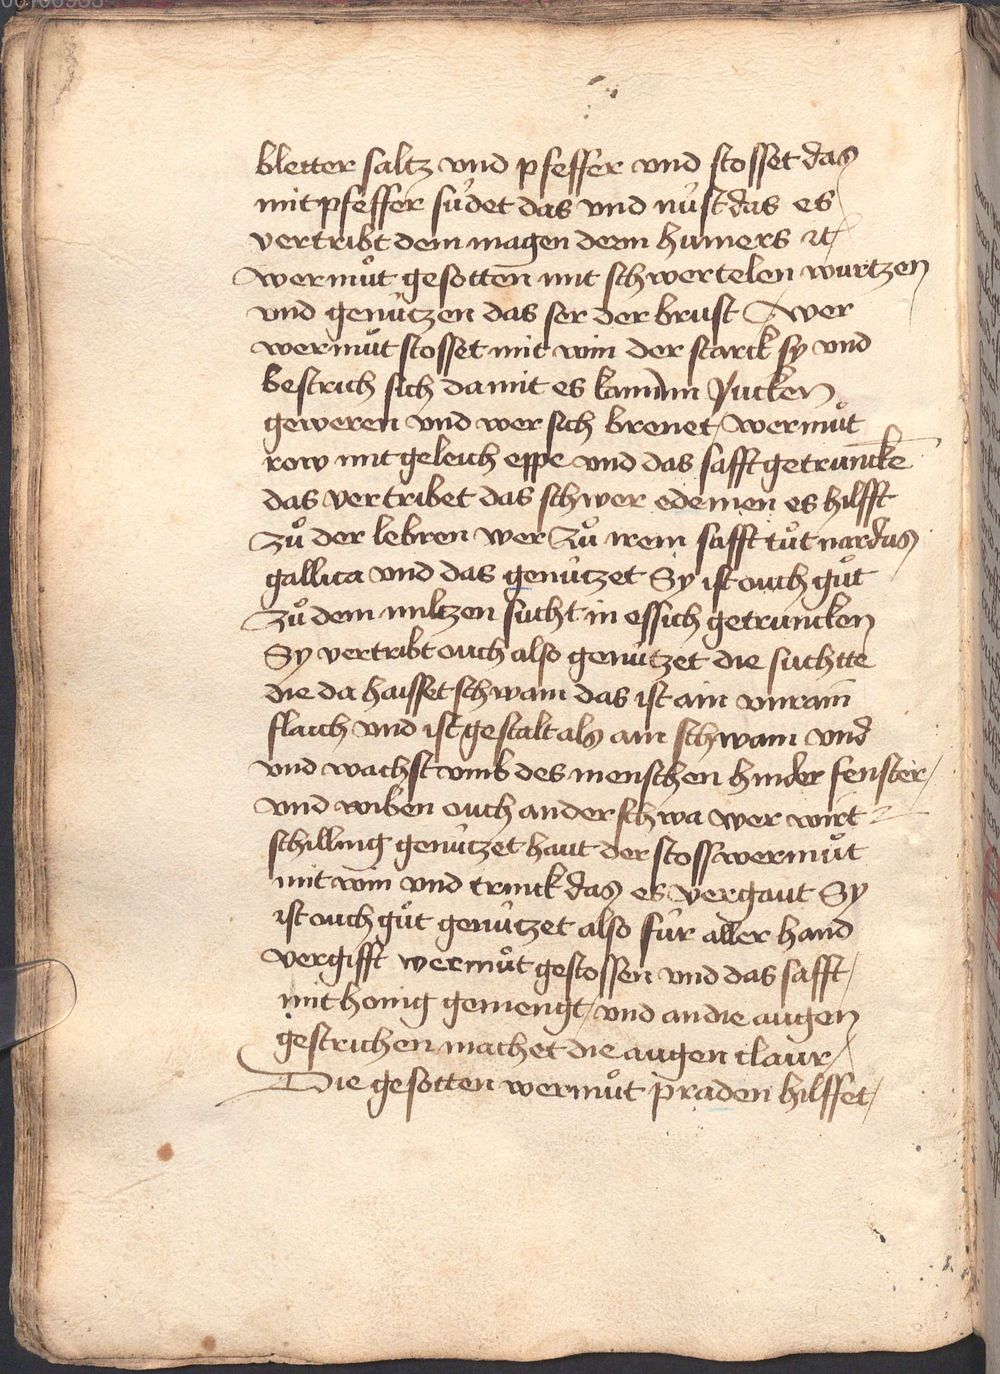 bletter saltz vnd pfeffer vnd stosset das
mit pfeffer su̍det das vnd nu̍st das es
vertribt dem magen deen humers ꝛc
wermuͦt gesotten mit schwertelen wurtzen
vnd genu̍tzen das ser der brust Wer
wermuͦt stosset mit win der starck sy vnd
bestrich sich damit es kain Jucken
geweren vnd wer sich brenet / wermuͦt
row mit geleich eppe vnd das safft getruncke
das vertribet das schwer edemen es hilfft
Zuͦ der lebren wer Zuͦ irem safft tuͦt nardus
gallica vnd das genu̍tzet Sy ist ouch guͦt
Zuͦ dem miltzen sucht in essich getruncken
Sy vertribt ouch also genu̍tzet die suchtte
die da haisset schwam das ist ain vnrain
flaich vnd ist gestalt als ain schwam vnd
vnd wachst vmb des menschen hinder fenster /
vnd wiben ouch anderschwa wer wirt
schilling genu̍tzet haut der stoss wermuͦt
mit win vnd trinck das es vergaut Sy
ist ouch guͦt genu̍tzet also fu̍r aller hand
vergifft wermuͦt gestossen vnd das safft /
mit honig gemengt / vnd an die augen
gestrichen machet die augen claur /
Die gesotten wermuͦt praden hilffet /